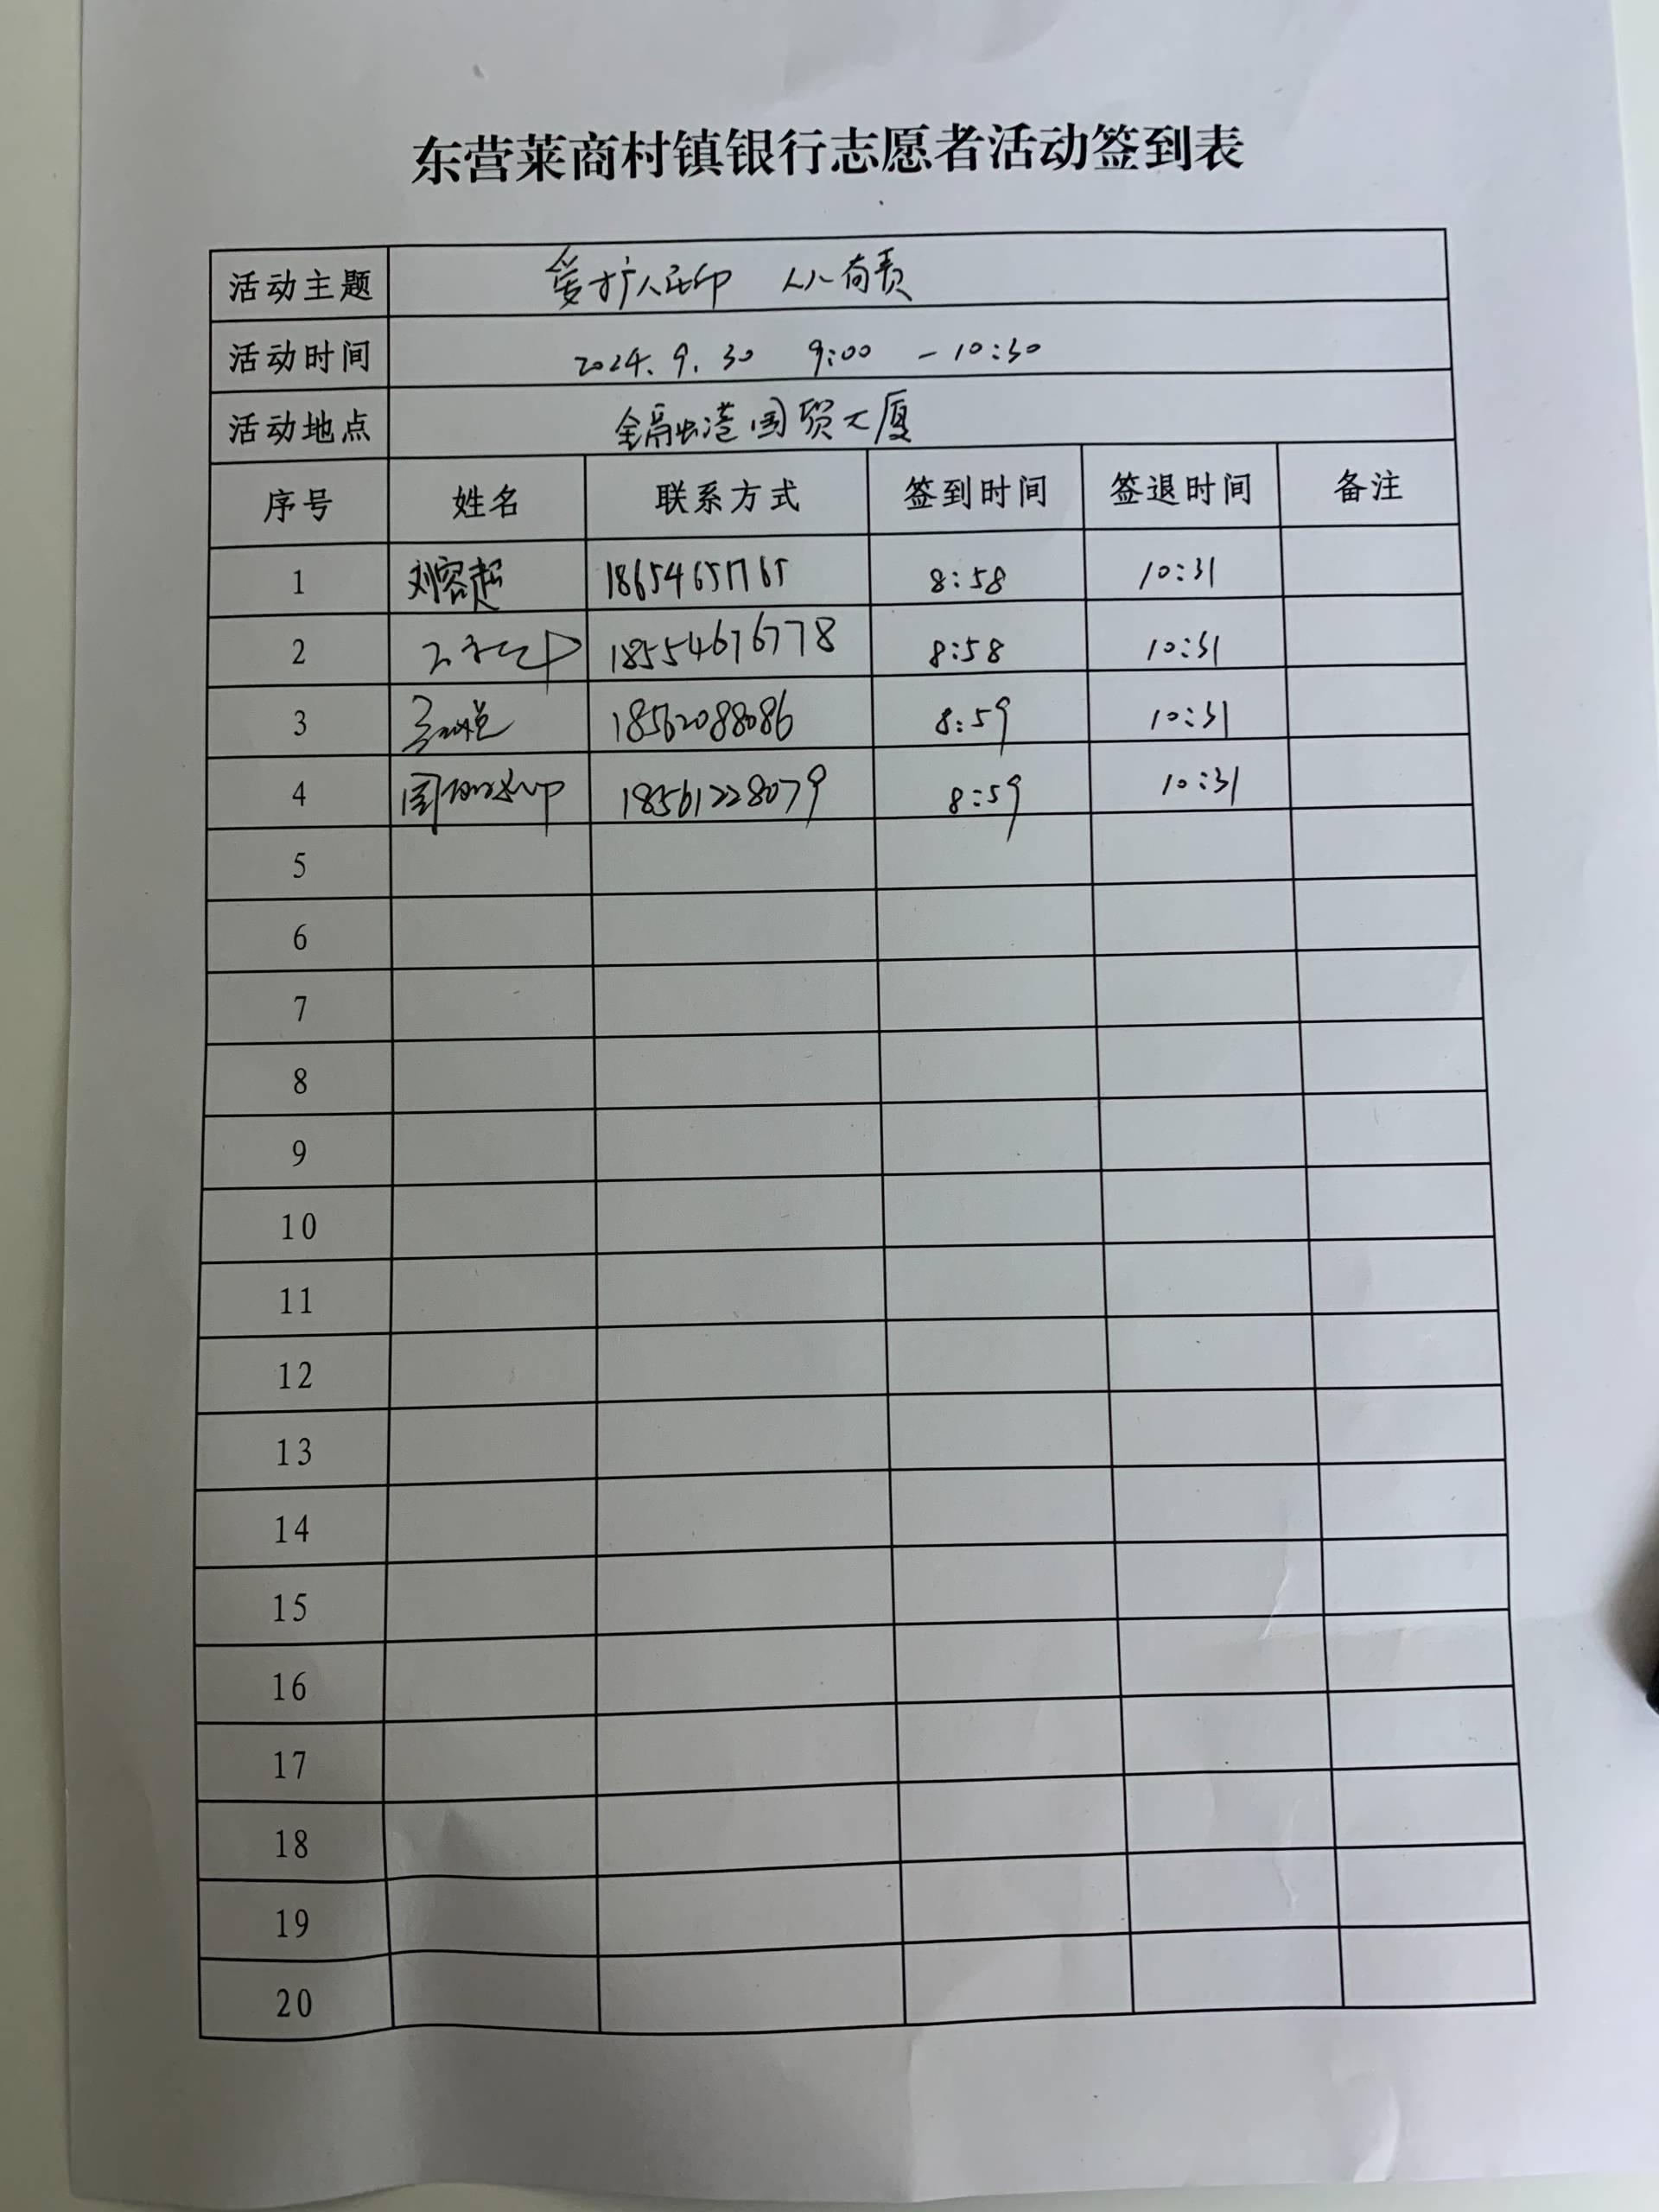 东营莱商村镇银行志愿者活动签到表
活动主题 爱护人民币 人人有责
活动时间 2024.9.30 9:00 - 10:30
活动地点 金融港国贸大厦
序号 姓名 联系方式 签到时间 签退时间 备注
1 刘容超 18654651765 8:58 10:31
2 18554676778 8:58 10:31
3 18562088086 8:59 10:31
4 18561228079 8:59 10:31
5
6
7
8
9
10
11
12
13
14
15
16
17
18
19
20